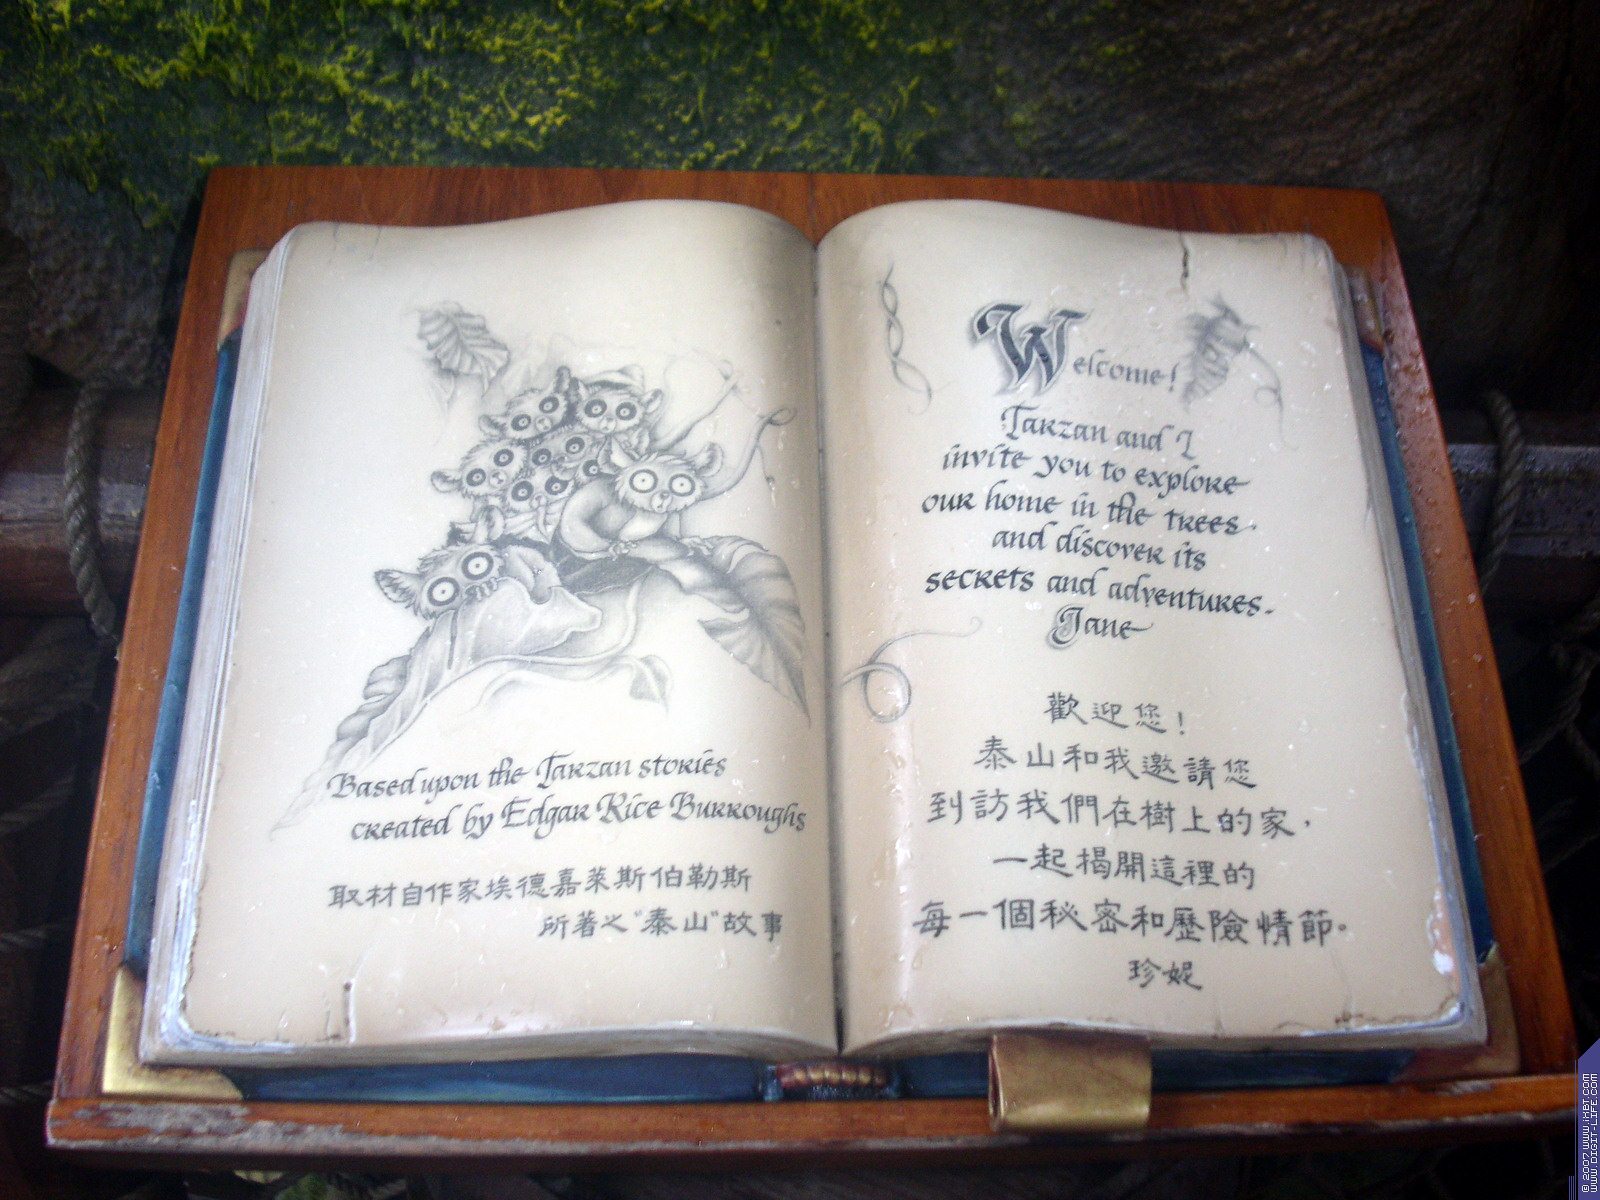 Based upon the Tarzan stories
created by Edgar Rice Burroughs
取材自作家埃德嘉萊斯伯勒斯
所著之"泰山"故事
Welcome!
Tarzan and I
invite you to explore
our home in the trees
and discover its
secrets and adventures.
Jane
歡迎您!
泰山和我邀請您
到訪我們在樹上的家,
一起揭開這裡的
每一個秘密和歷險情節。
珍妮
© 2007 WWW.IXBT.COM
WWW.DIGIT-LIFE.COM